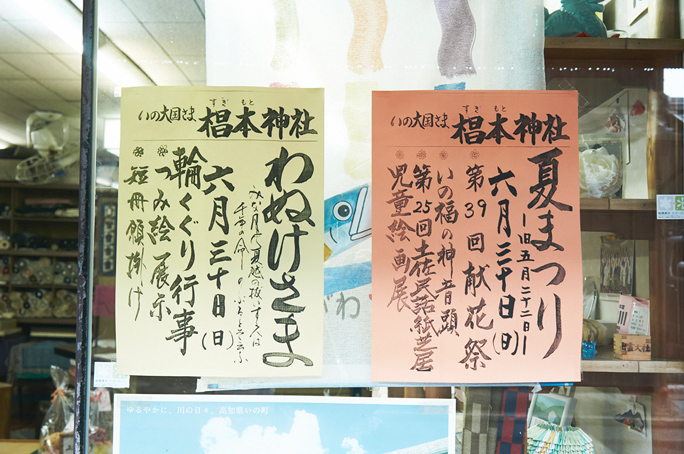 いの大国さま 椙本神社
すぎ もと
わぬけさま
みな月の夏越の祓する人は
千年の命のぶるといふ
六月三十日(日)
輪くぐり行事
※つみ絵展示
※短冊願掛け
いの大国さま 椙本神社
すぎ もと
夏まつり
|旧五月二十二日|
六月三十日(日)
※第39回献花祭
※いの福の神音頭
※第25回土佐民話紙芝居
※児童絵画展
ゆるやかに、川の日々。高知県いの町